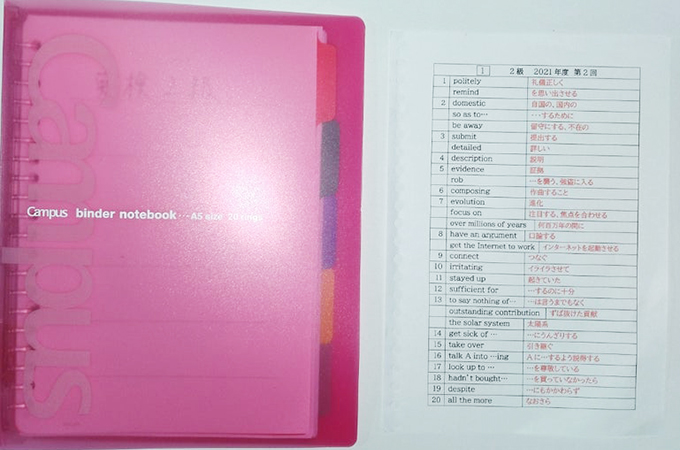 Campus
Campus binder notebook…A5 size 20 rings
1 2級 2021年度 第2回
1 politely 礼儀正しく
remind を思い出させる
2 domestic 自国の、国内の
so as to… …するために
be away 留守にする、不在の
3 submit 提出する
detailed 詳しい
4 description 説明
5 evidence 証拠
rob …を襲う、強盗に入る
6 composing 作曲すること
7 evolution 進化
focus on 注目する、焦点を合わせる
over millions of years 何百万年の間に
8 have an argument 口論する
get the Internet to work インターネットを起動させる
9 connect つなぐ
10 irritating イライラさせて
11 stayed up 起きていた
12 sufficient for …するのに十分
13 to say nothing of… …は言うまでもなく
outstanding contribution ずば抜けた貢献
the solar system 太陽系
14 get sick of … …にうんざりする
15 take over 引き継ぐ
16 talk A into …ing Aに…するよう説得する
17 look up to … …を尊敬している
18 hadn't bought… …を買っていなかったら
19 despite …にもかかわらず
20 all the more なおさら